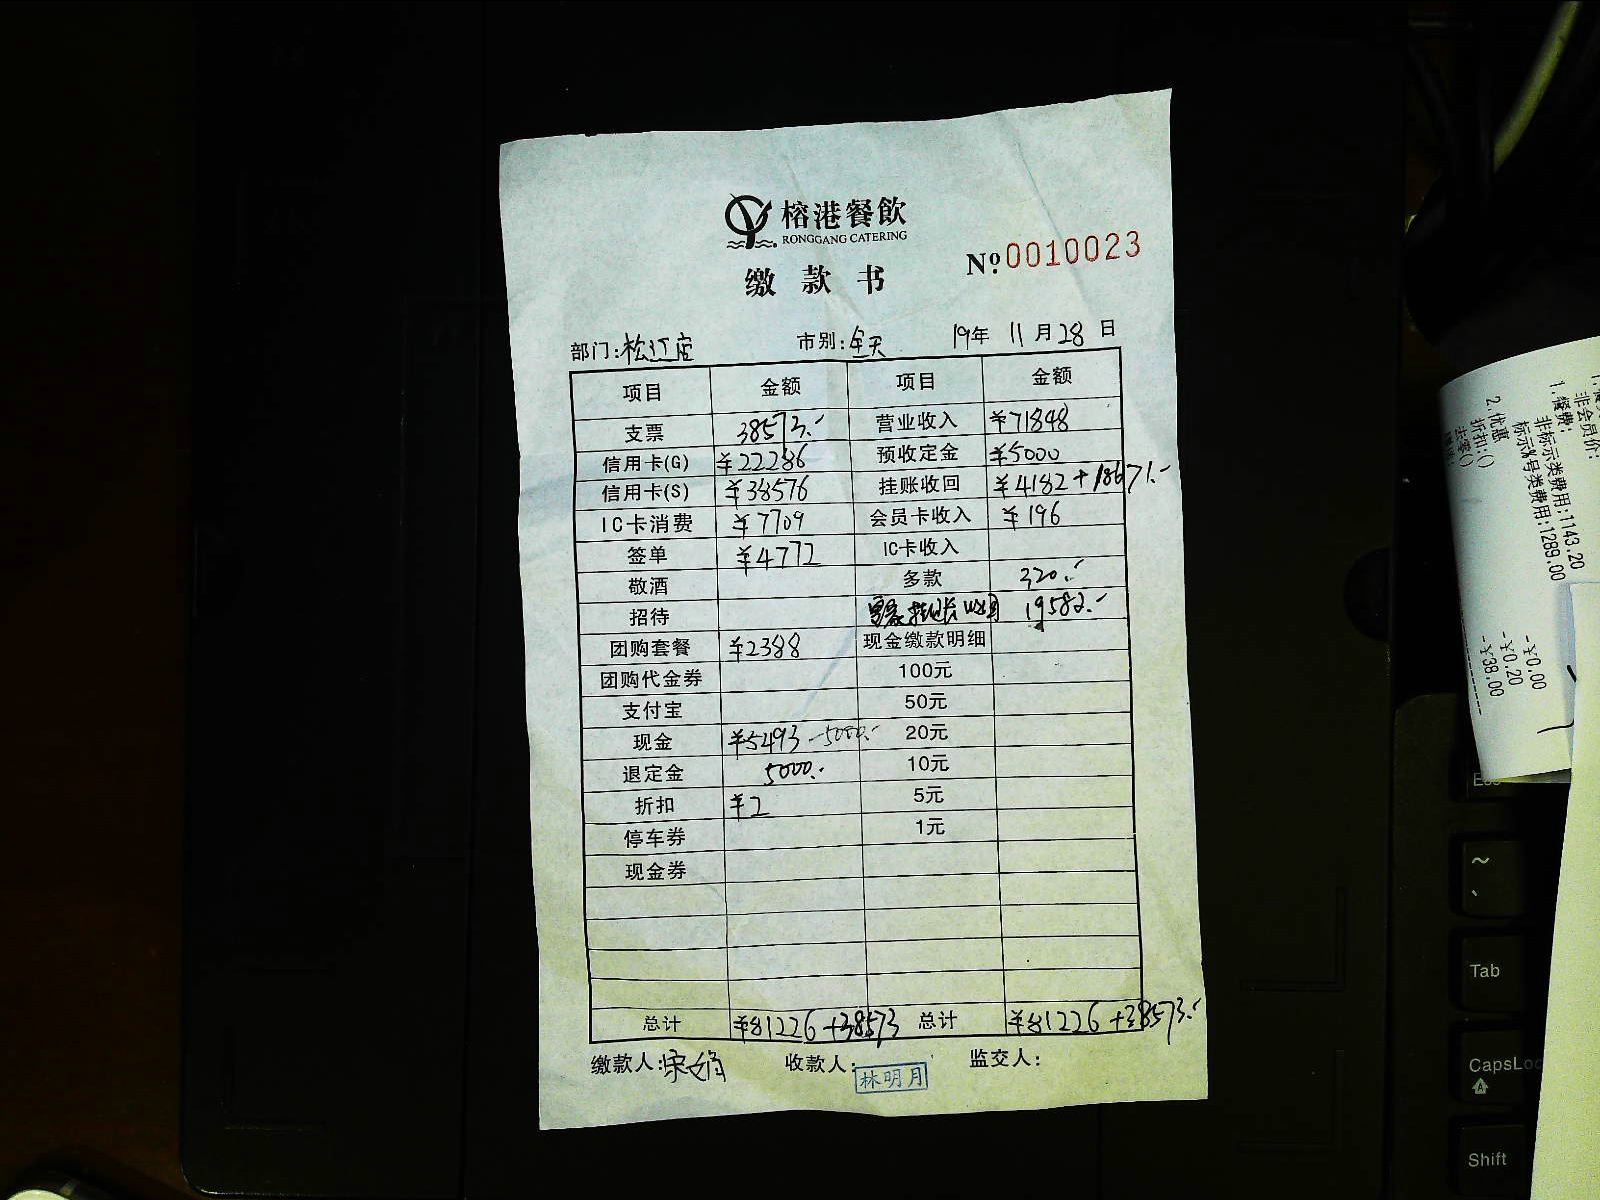 榕港餐飲
RONGGANG CATERING
缴款书
№0010023
部门:松江店 市别:全天 19年11月28日
项目 金额 项目 金额
支票 38573.- 营业收入 ¥71848
信用卡(G) ¥22286 预收定金 ¥5000
信用卡(S) ¥38576 挂账收回 ¥4182+18671.-
IC卡消费 ¥7709 会员卡收入 ¥196
签单 ¥4772 IC卡收入
敬酒 多款 320.-
招待 19582.-
团购套餐 ¥2388 现金缴款明细
团购代金券 100元
支付宝 50元
现金 ¥5493-5000.- 20元
退定金 5000.- 10元
折扣 ¥2 5元
停车券 1元
现金券
总计 ¥81226+38573 总计 ¥81226+38573.-
缴款人: 收款人:林明月 监交人:
1.餐费:
非会员价:
非标示类费用:1143.20
标示※号类费用:1289.00
2.优惠
折扣:()
去零()
-¥0.00
-¥0.20
-¥38.00
Esc
~
Tab
CapsLoc
Shift